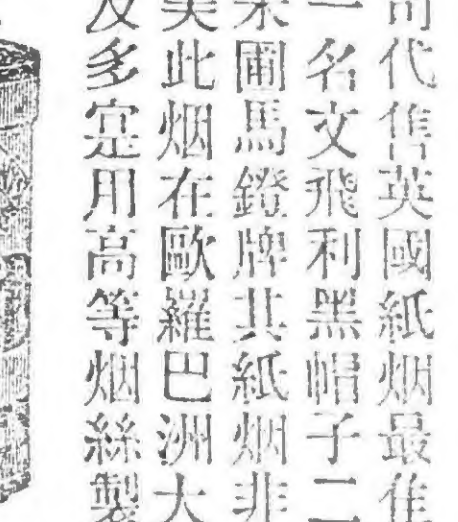 司代售英國紙烟最佳
一名文飛利黑帽子二
圃馬鐙牌其紙烟非
美此烟在歐羅巴洲大
及多寔用高等烟絲製